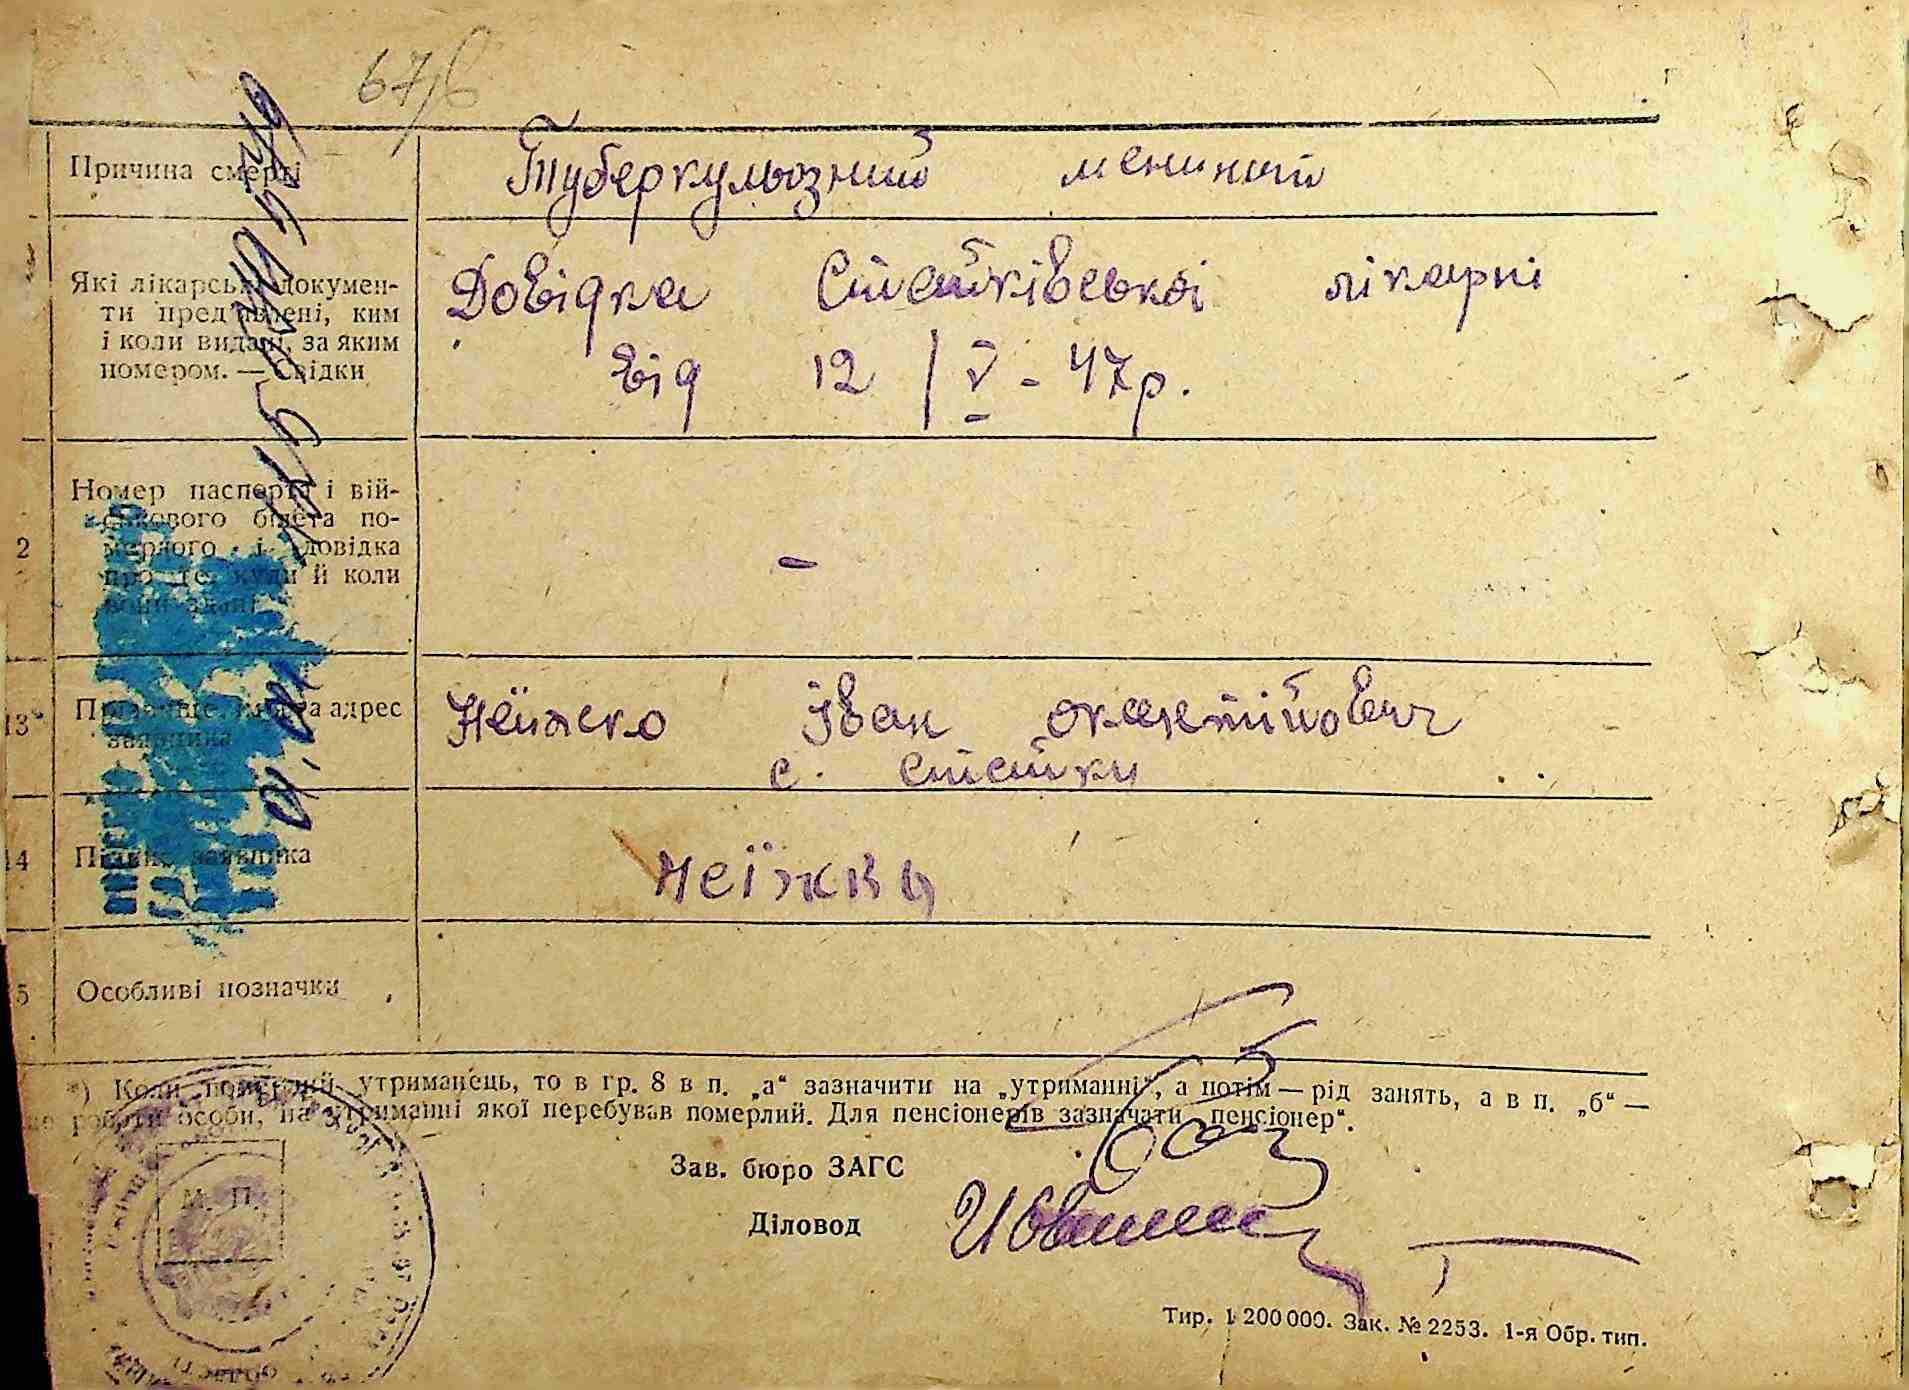 67/в
Причина смерті
Туберкульозний менингит
Які лікарські докумен-
ти пред'явлені, ким
і коли видані, за яким
номером. — Свідки
Довідка Стайківської лікарні
від 12 / V - 47р.
2
Номер паспорта і вій-
ськового білета по-
мерлого і довідка
про те, куди й коли
вони здані
-
13
Прізвище, ім'я та адрес
заявника
Неїжко Іван
с. Стайки
14
Підпис заявника
Неїжко
5
Особливі позначки
*) Коли померлий утриманець, то в гр. 8 в п. „а“ зазначити на „утриманні“, а потім — рід занять, а в п. „б“ —
роботи особи, на утриманні якої перебував померлий. Для пенсіонерів зазначати „пенсіонер“.
Зав. бюро ЗАГС
М. П.
Діловод
Тир. 1 200 000. Зак. № 2253. 1-я Обр. тип.